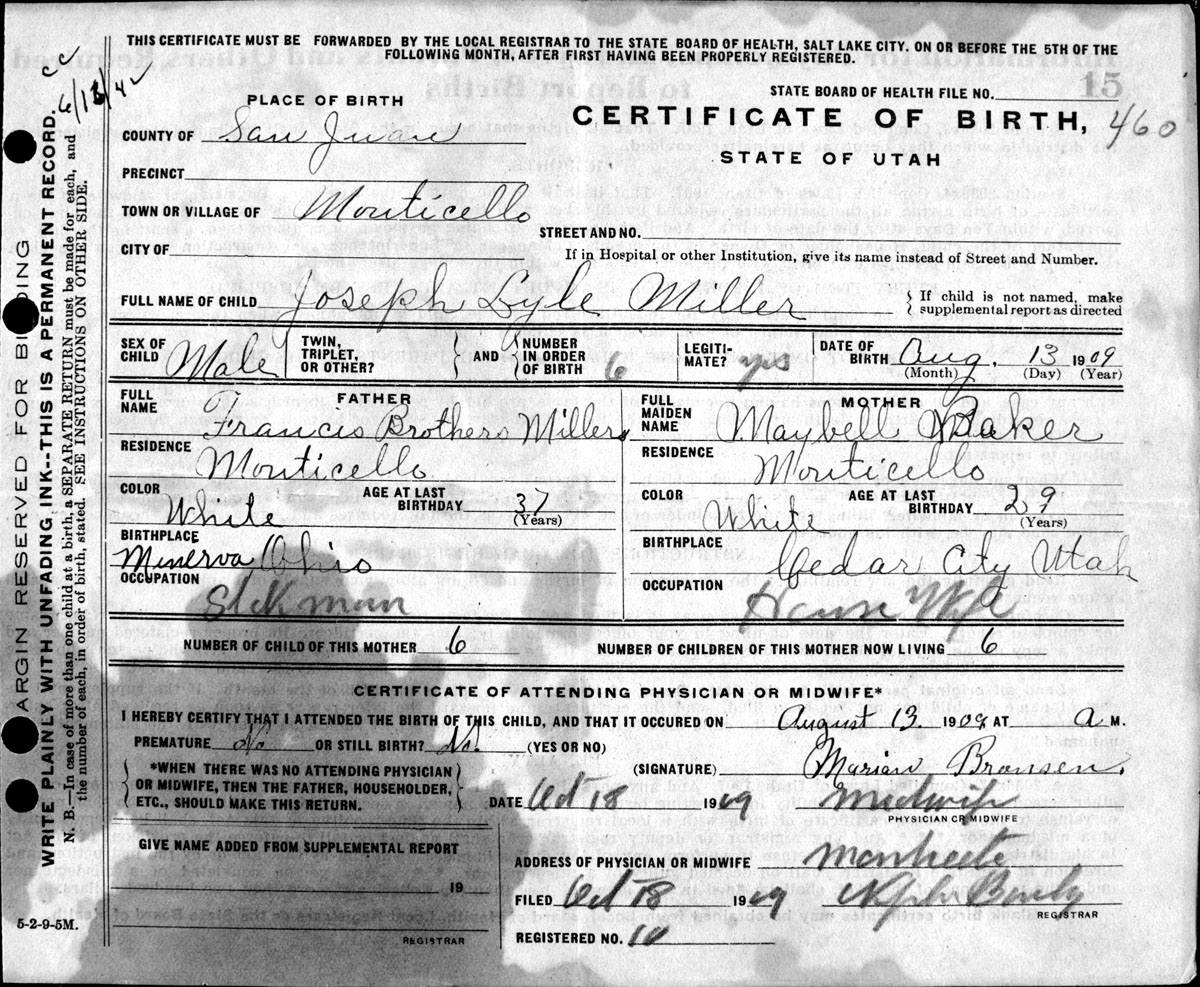 THIS CERTIFICATE MUST BE FORWARDED BY THE LOCAL REGISTRAR TO THE STATE BOARD OF HEALTH, SALT LAKE CITY. ON OR BEFORE THE 5TH OF THE
FOLLOWING MONTH, AFTER FIRST HAVING BEEN PROPERLY REGISTERED.
STATE BOARD OF HEALTH FILE NO. 15
CERTIFICATE OF BIRTH, 460
STATE OF UTAH
PLACE OF BIRTH
COUNTY OF San Juan
PRECINCT
TOWN OR VILLAGE OF Monticello
STREET AND NO.
CITY OF
If in Hospital or other Institution, give its name instead of Street and Number.
FULL NAME OF CHILD Joseph Lyle Miller
If child is not named, make
supplemental report as directed
SEX OF CHILD Male
TWIN, TRIPLET, OR OTHER?
AND NUMBER IN ORDER OF BIRTH 6
LEGITIMATE? yes
DATE OF BIRTH Aug. 13 1909
(Month) (Day) (Year)
FATHER
FULL NAME Francis Brothers Millers
RESIDENCE Monticello
COLOR White
AGE AT LAST BIRTHDAY 37
(Years)
BIRTHPLACE Minerva Ohio
OCCUPATION Stkman
MOTHER
FULL MAIDEN NAME Maybell Baker
RESIDENCE Monticello
COLOR White
AGE AT LAST BIRTHDAY 29
(Years)
BIRTHPLACE Cedar City Utah
OCCUPATION House Wife
NUMBER OF CHILD OF THIS MOTHER 6
NUMBER OF CHILDREN OF THIS MOTHER NOW LIVING 6
CERTIFICATE OF ATTENDING PHYSICIAN OR MIDWIFE*
I HEREBY CERTIFY THAT I ATTENDED THE BIRTH OF THIS CHILD, AND THAT IT OCCURED ON August 13. 1909 AT a M.
PREMATURE No OR STILL BIRTH? No. (YES OR NO)
*WHEN THERE WAS NO ATTENDING PHYSICIAN
OR MIDWIFE, THEN THE FATHER, HOUSEHOLDER,
ETC., SHOULD MAKE THIS RETURN.
(SIGNATURE) Marian Bronsen.
DATE Oct 18 1909 Midwife
PHYSICIAN OR MIDWIFE
GIVE NAME ADDED FROM SUPPLEMENTAL REPORT
19
REGISTRAR
ADDRESS OF PHYSICIAN OR MIDWIFE
FILED Oct 18 1909
REGISTRAR
REGISTERED NO. 10
5-2-9-5M.
MARGIN RESERVED FOR BINDING
WRITE PLAINLY WITH UNFADING INK--THIS IS A PERMANENT RECORD.
N. B.—In case of more than one child at a birth, a SEPARATE RETURN must be made for each, and
the number of each, in order of birth, stated. SEE INSTRUCTIONS ON OTHER SIDE.